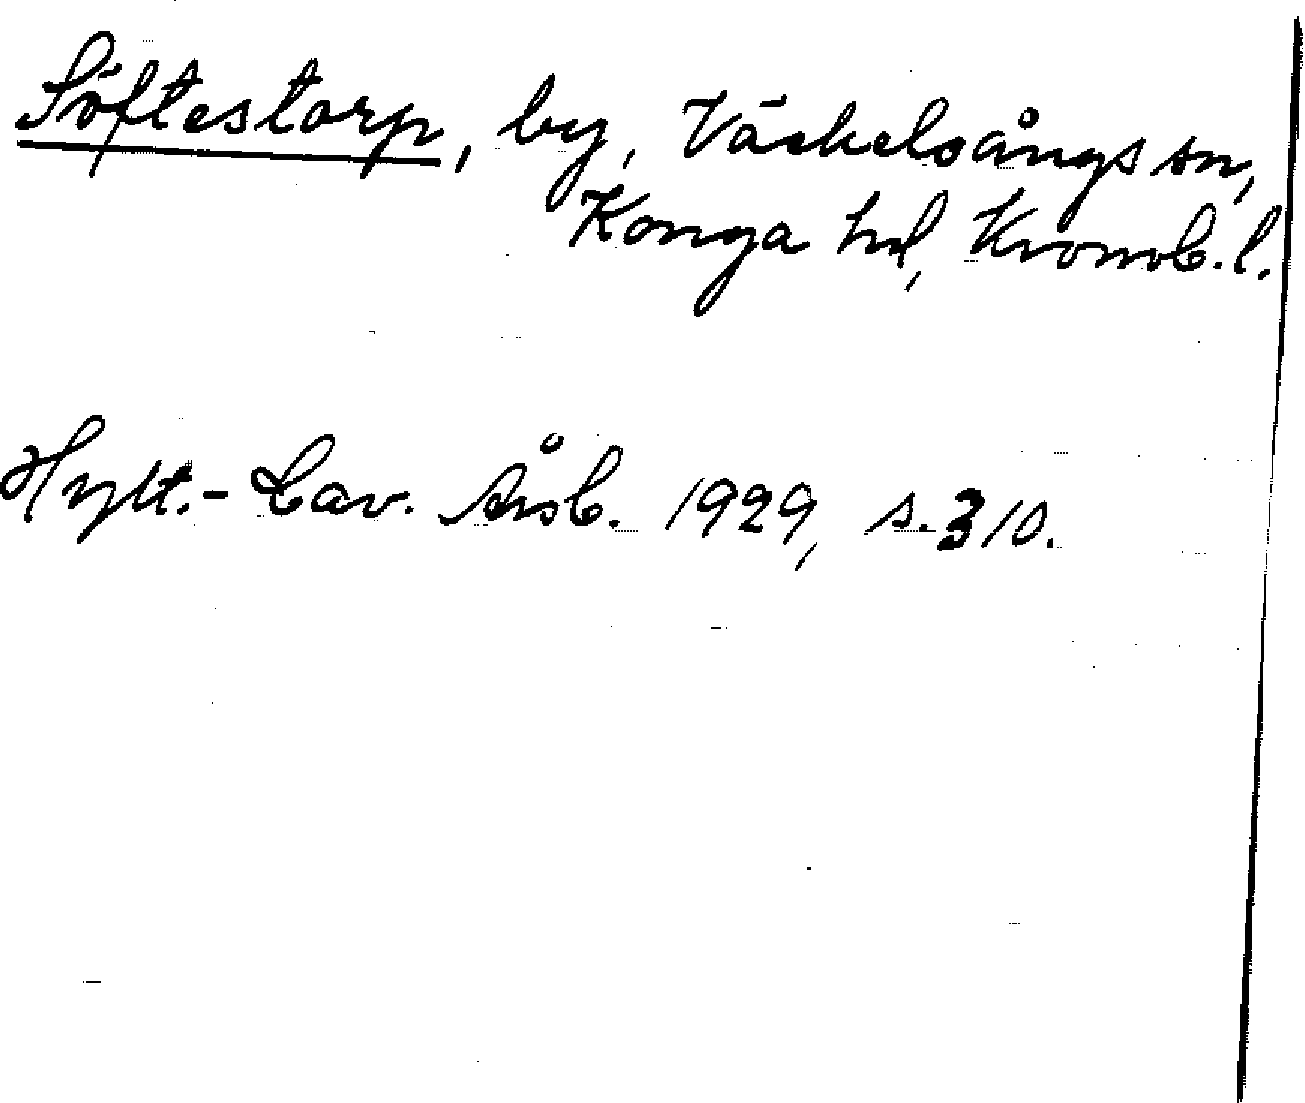 Söftestorp, by, Väckelsångs sn,
Konga hd, Kronob. l.
Hylt.-Cav. Årsb. 1929, s. 310.